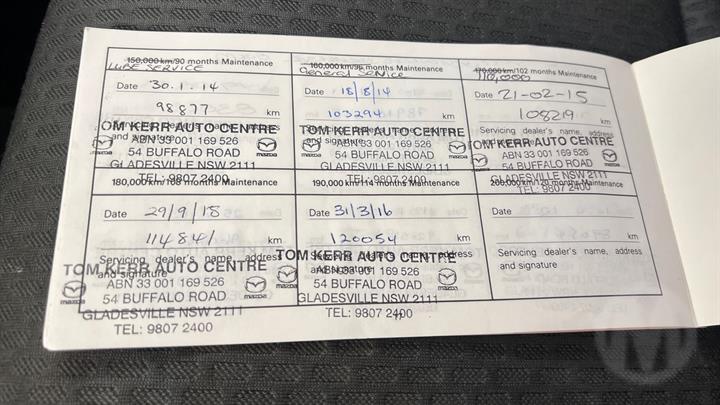 150,000 km/90 months Maintenance
LUBE SERVICE
Date 30.1.14
98877 km
Servicing dealer's name, address
and signature
TOM KERR AUTO CENTRE
ABN 33 001 169 526
54 BUFFALO ROAD
mazda
GLADESVILLE NSW 2111
TEL: 9807 2400
160,000 km/96 months Maintenance
General Service
Date 18/8/14
103294 km
Servicing dealer's name, address
and signature
TOM KERR AUTO CENTRE
ABN 33 001 169 526
54 BUFFALO ROAD
mazda
GLADESVILLE NSW 2111
TEL: 9807 2400
170,000 km/102 months Maintenance
110,000
Date 21-02-15
108219 km
Servicing dealer's name, address
and signature
TOM KERR AUTO CENTRE
ABN 33 001 169 526
54 BUFFALO ROAD
mazda
GLADESVILLE NSW 2111
TEL: 9807 2400
180,000 km/108 months Maintenance
Date 29/9/15
114841 km
Servicing dealer's name, address
and signature
TOM KERR AUTO CENTRE
ABN 33 001 169 526
mazda
54 BUFFALO ROAD
mazda
GLADESVILLE NSW 2111
TEL: 9807 2400
190,000 km/114 months Maintenance
Date 31/3/16
120054 km
Servicing dealer's name, address
and signature
TOM KERR AUTO CENTRE
ABN 33 001 169 526
54 BUFFALO ROAD
mazda
GLADESVILLE NSW 2111
TEL: 9807 2400
200,000 km/120 months Maintenance
Date
km
Servicing dealer's name, address
and signature